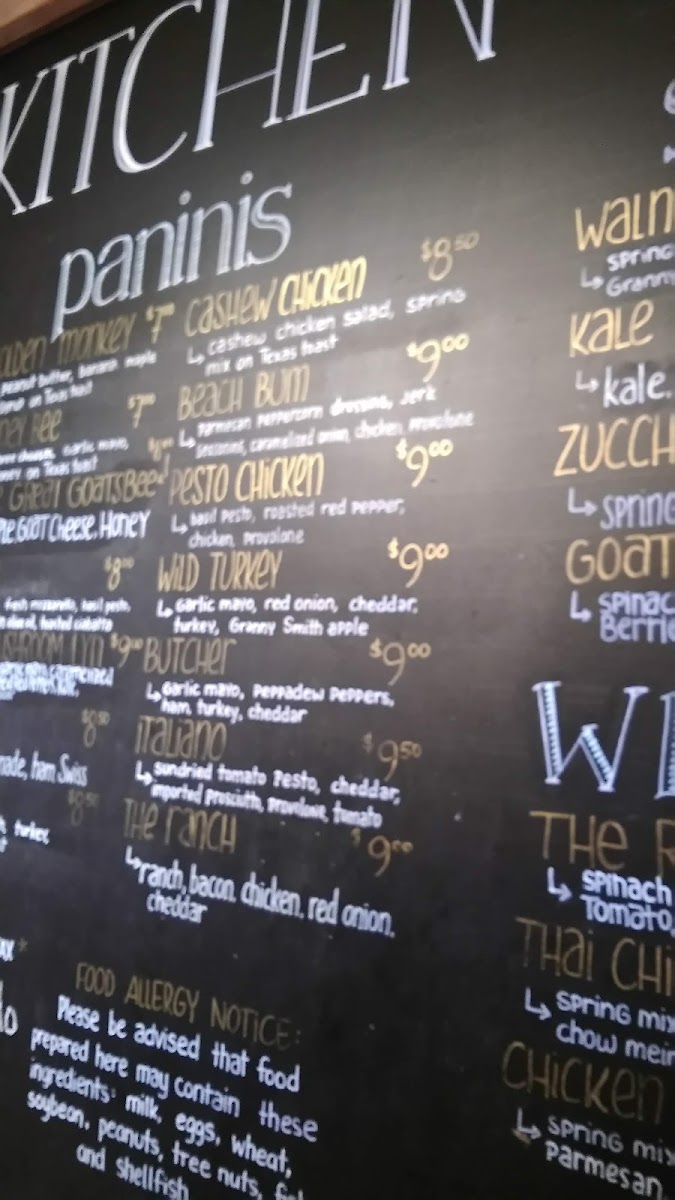 KITCHEN
paninis
MONKEY $7.00
Peanut butter, banana, maple
on Texas toast
BEE $7.00
garlic mayo,
on Texas toast
GREAT GOATSBEE
GOAT CHEESE, HONEY
$8.00
fresh mozzarella, basil pesto,
toasted ciabatta
$9.00
$8.50
ham, Swiss
$8.50
turkey,
CASHEW CHICKEN $8.50
↳ cashew chicken salad, spring
mix on Texas toast
BEACH BUM $9.00
↳ Parmesan peppercorn dressing, jerk
seasoning, caramelized onion, chicken, provolone
PESTO CHICKEN $9.00
↳ basil pesto, roasted red pepper,
chicken, provolone
WILD TURKEY $9.00
↳ Garlic mayo, red onion, cheddar,
turkey, Granny Smith apple
BUTCHER $9.00
↳ Garlic mayo, Peppadew Peppers,
ham, turkey, cheddar
ITALIANO $9.50
↳ sundried tomato pesto, cheddar,
imported prosciutto, provolone, tomato
THE RANCH $9.00
↳ ranch, bacon, chicken, red onion,
cheddar
FOOD ALLERGY NOTICE:
Please be advised that food
prepared here may contain these
ingredients: milk, eggs, wheat,
soybean, peanuts, tree nuts,
and shellfish
↳ spring
Granny
KALE
↳ kale,
↳ spring
GOAT
↳
THE
↳ spinach
Tomato,
THAI
↳ spring mix
chow mein
CHICKEN
↳ spring mix
parmesan